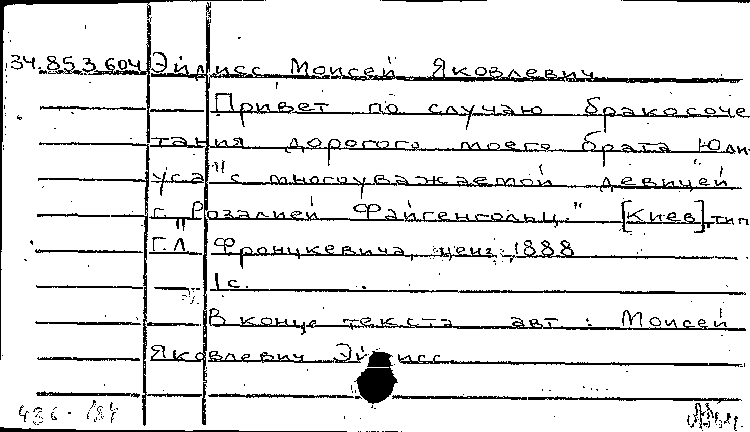 34.853.604 Эйдисс Моисей Яковлевич
Привет по случаю бракосоче
тания дорогого моего брата Юли
уса "с многоуважаемой девицей
г. Розалией Файгенгольц." [Киев], тип.
Г.Л. Фронцкевича, ценз. 1888
1 с.
В конце текста авт : Моисей
Яковлевич Эйдисс.
436 - 184